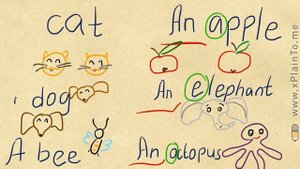 cat
dog
A bee
An apple
An elephant
An octopus
www.xPlainTo.me